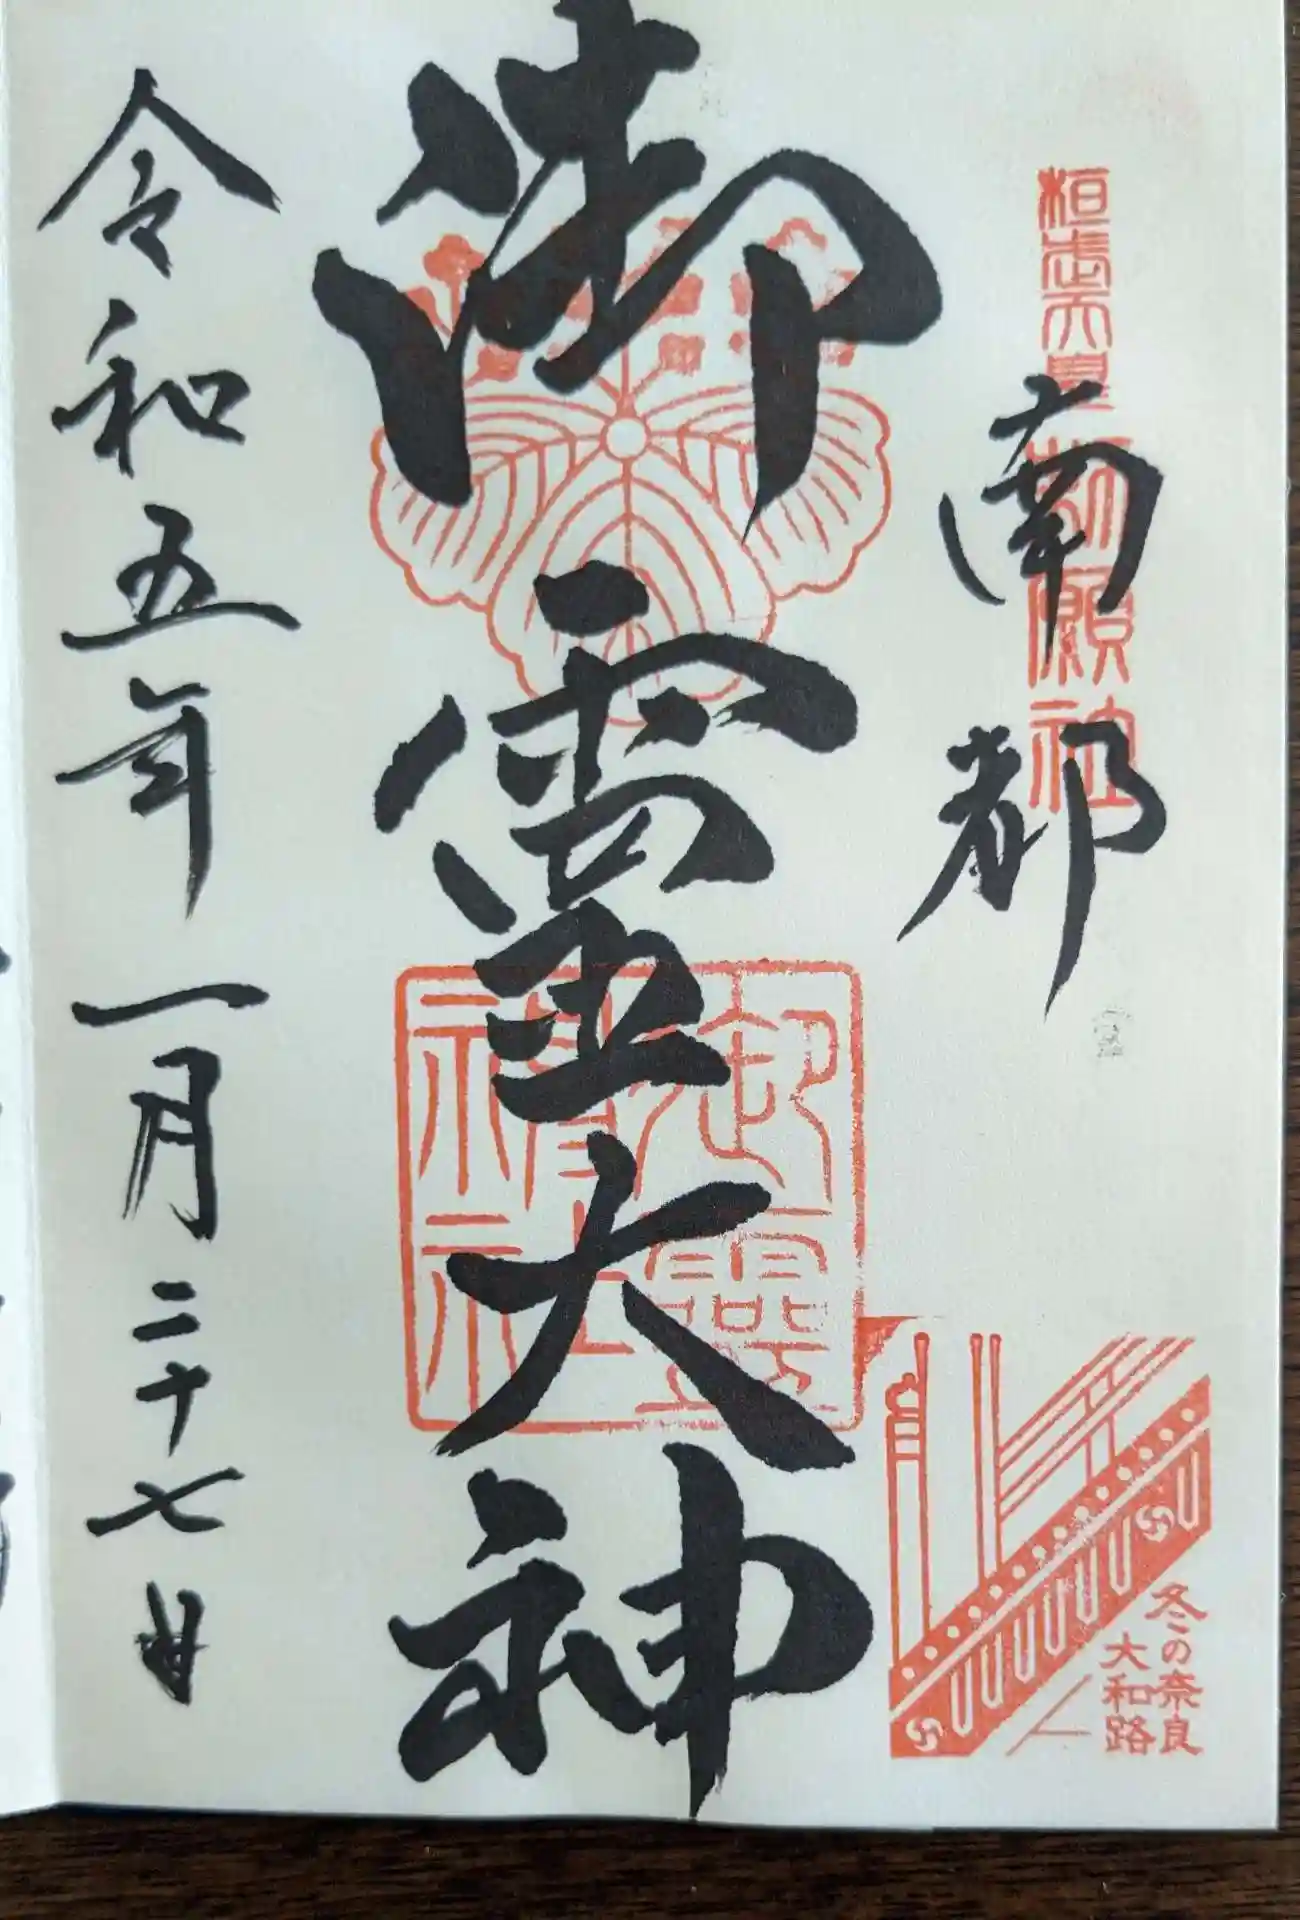 桓武天皇勅願社
南都
御霊大神
御霊神社
令和五年一月二十七日
冬の奈良
大和路